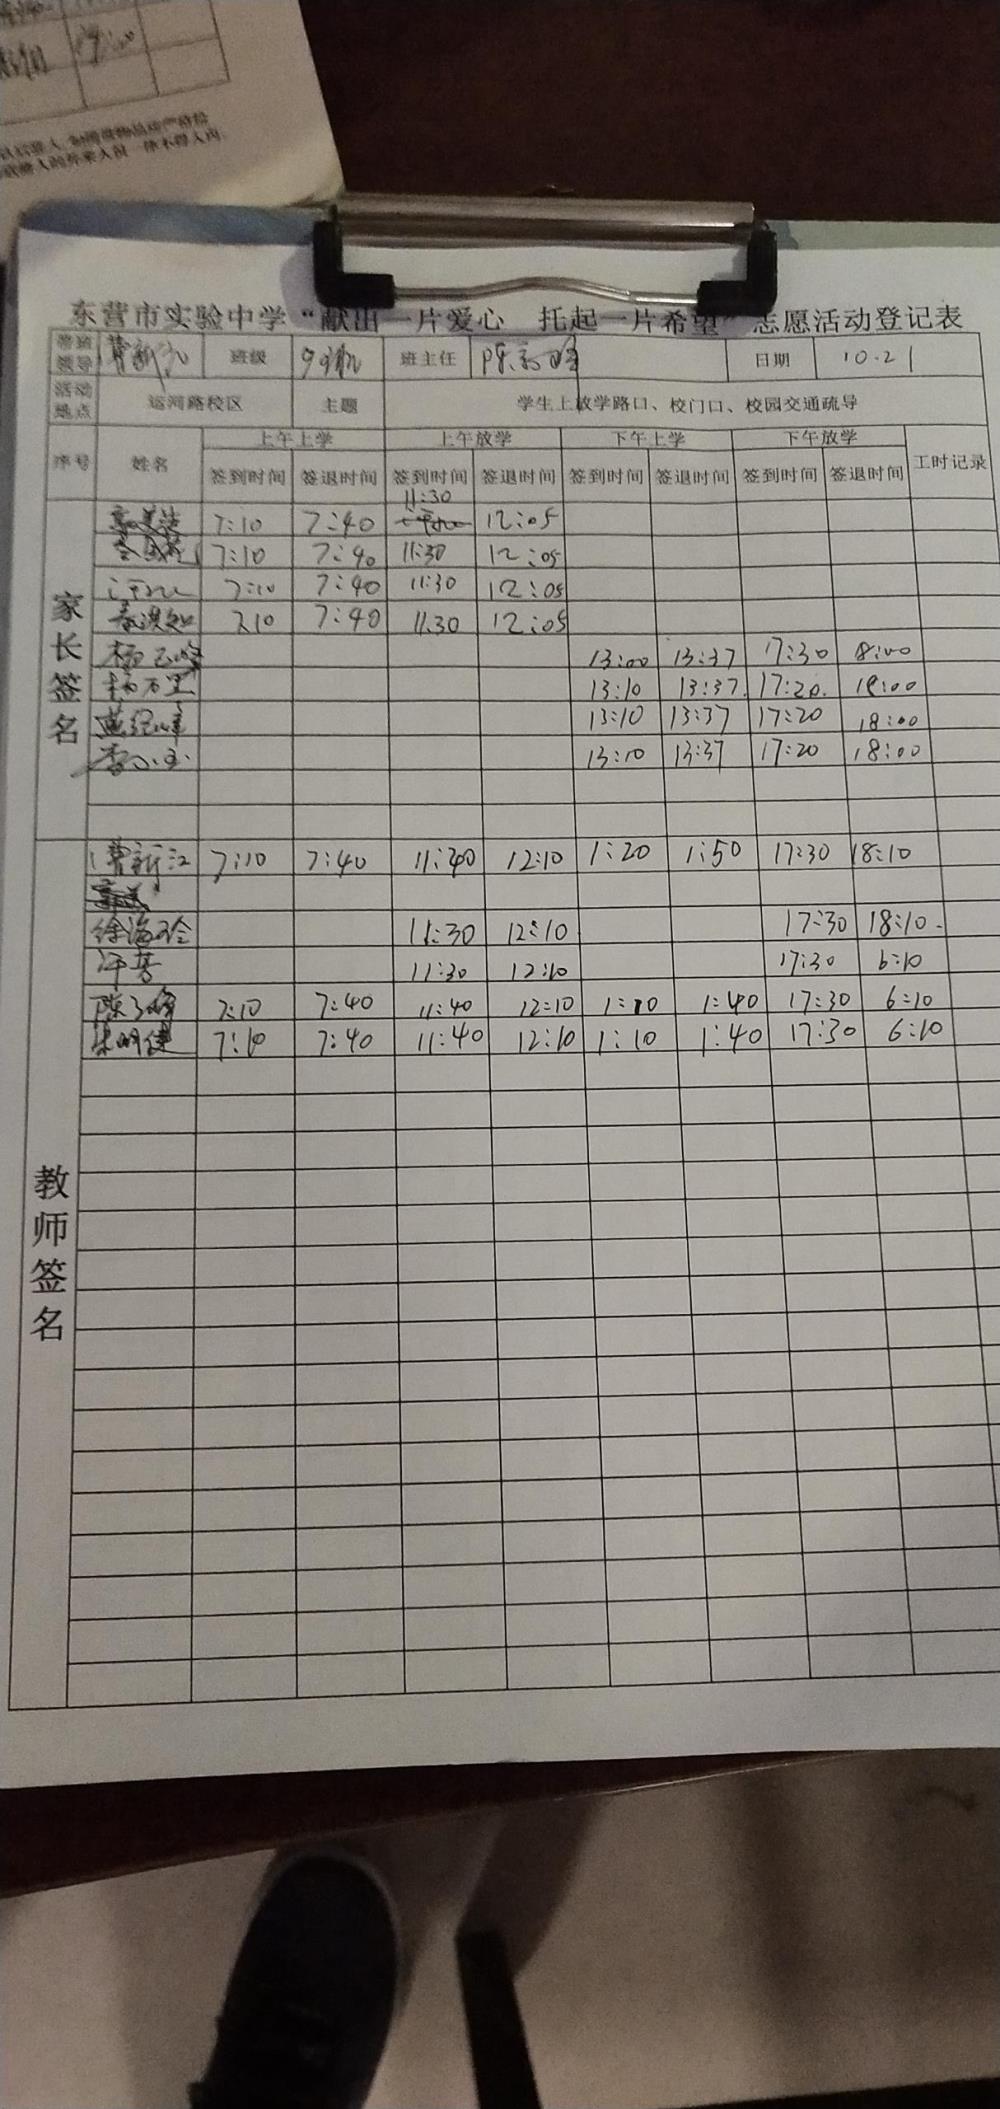 东营市实验中学“献出一片爱心 托起一片希望”志愿活动登记表
带班领导 曹新江 班级 班主任 陈 日期 10.21
活动地点 运河路校区 主题 学生上放学路口、校门口、校园交通疏导
序号 姓名 上午上学 上午放学 下午上学 下午放学 工时记录
签到时间 签退时间 签到时间 签退时间 签到时间 签退时间 签到时间 签退时间
家长签名
7:10 7:40 11:30 12:05
7:10 7:40 11:30 12:05
7:10 7:40 11:30 12:05
7:10 7:40 11:30 12:05
杨 13:00 13:37 17:30 8:00
杨万里 13:10 13:37 17:20 18:00
13:10 13:37 17:20 18:00
李 13:10 13:37 17:20 18:00
教师签名
曹新江 7:10 7:40 11:40 12:10 1:20 1:50 17:30 18:10
徐海玲 11:30 12:10 17:30 18:10
11:30 12:10 17:30 6:10
陈 7:10 7:40 11:40 12:10 1:10 1:40 17:30 6:10
明健 7:10 7:40 11:40 12:10 1:10 1:40 17:30 6:10